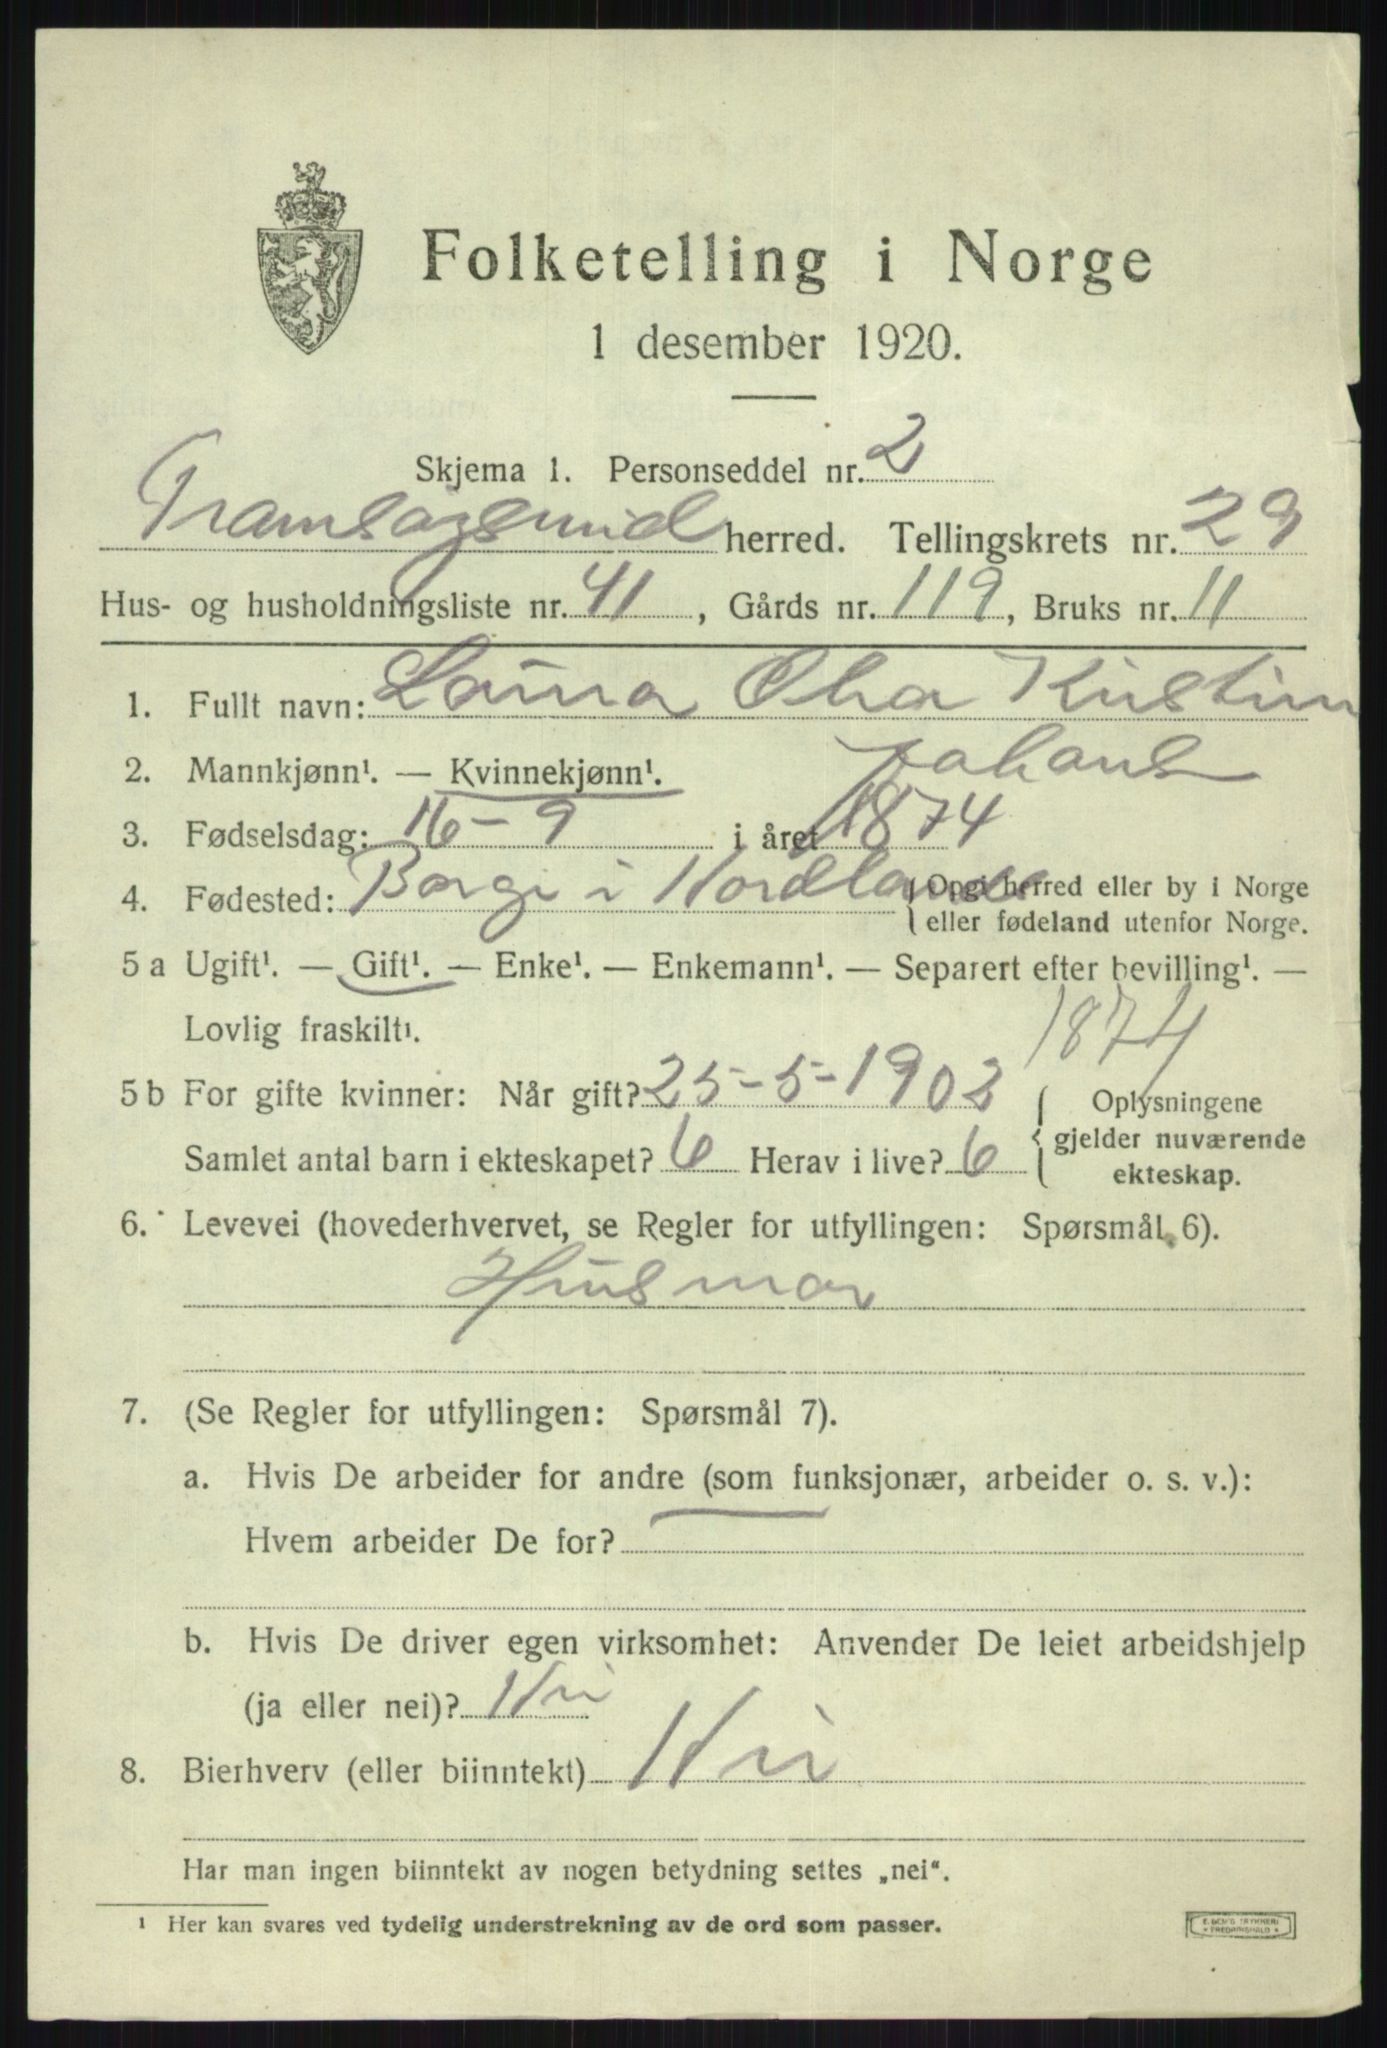 Folketelling i Norge
1 desember 1920.
Skjema 1. Personseddel nr. 2
Tromsøysund herred. Tellingskrets nr. 29
Hus- og husholdningsliste nr. 41, Gårds nr. 119, Bruks nr. 11
1. Fullt navn: Laura Olea Kristine
Johans
2. Mannkjønn¹. — Kvinnekjønn¹.
3. Fødselsdag: 16-9 i året 1874
4. Fødested: Borge i Nordland { Opgi herred eller by i Norge
eller fødeland utenfor Norge.
5 a Ugift¹. — Gift¹. — Enke¹. — Enkemann¹. — Separert efter bevilling¹. —
Lovlig fraskilt¹.
1874
5 b For gifte kvinner: Når gift? 25-5-1903 { Oplysningene
gjelder nuværende
Samlet antal barn i ekteskapet? 6 Herav i live? 6
ekteskap.
6. Levevei (hovederhvervet, se Regler for utfyllingen: Spørsmål 6).
Husmor
7. (Se Regler for utfyllingen: Spørsmål 7).
a. Hvis De arbeider for andre (som funksjonær, arbeider o. s. v.):
Hvem arbeider De for?
b. Hvis De driver egen virksomhet: Anvender De leiet arbeidshjelp
(ja eller nei)? Nei
8. Bierhverv (eller biinntekt) Nei
Har man ingen biinntekt av nogen betydning settes „nei“.
¹ Her kan svares ved tydelig understrekning av de ord som passer.